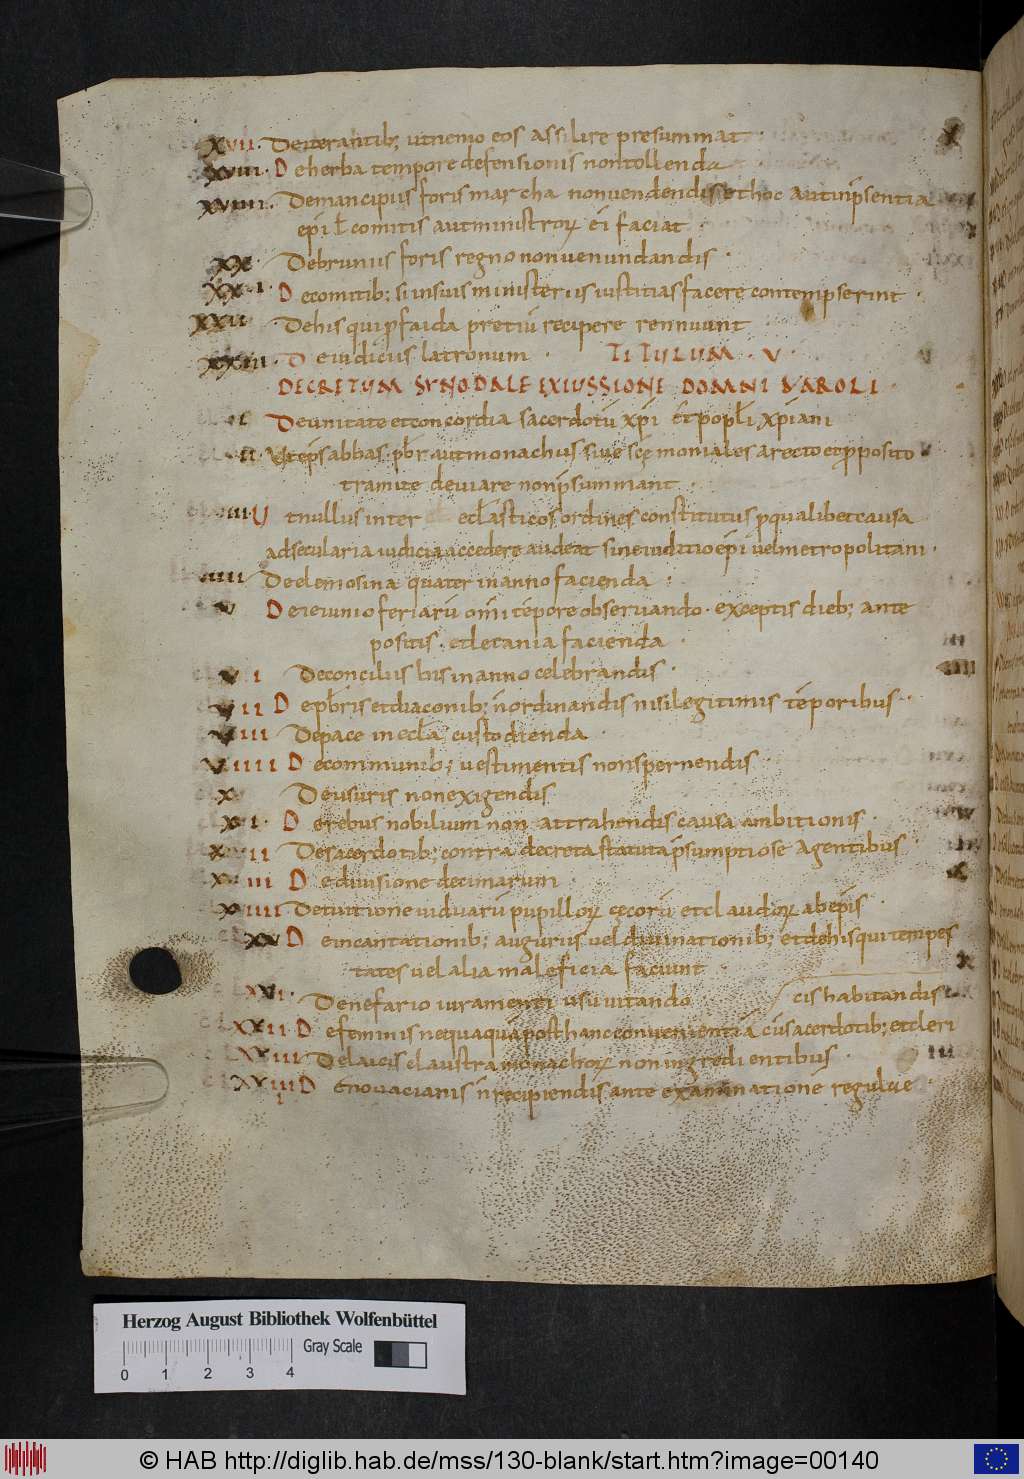 XVII. De iterantib; ut nemo eos assilire presummat.
XVIII. De herba tempore defensionis non tollenda
XVIIII. De mancipiis foris marcha non vendendis et hoc aut in p̄sentia
ep̄i ł comitis aut ministrorꝝ ei faciat
XX. De brunius foris regno non venundandis.
XXI. De comitib; si in suis ministeriis iustitias facere contempserint.
XXII. De his qui p faida pretiū recipere rennuunt
XXIII. De iudiciis latronum. TITULUM. V.
DECRETUM SYNODALE EX IUSSIONE DOMNI KAROLI.
I De unitate et concordia sacerdotū xp̄i et popłi xp̄iani
II Ut ep̄s abbas. pbr̄ aut monachus sive scę moniales a recto et p̄posito
tramite deviare non p̄summant.
III Ut nullus inter ecl̄asticos ordines constitutus p qualibet causa
ad secularia iudicia accedere audeat sine iuditio ep̄i vel metropolitani.
IIII De elemosina quater in anno facienda:
V De ieiunio feriarū om̄i tēpore observando. exceptis dieb; ante
positis. et letania facienda.
VI De conciliis bis in anno celebrandis.
VII De pbr̄is et diaconib; n̄ ordinandis nisi legitimis tēporibus.
VIII De pace in ecl̄a custodienda.
VIIII De communib; vestimentis non spernendis.
X De usuris non exigendis
XI. De rebus nobilium non attrahendis causa ambitionis.
XII De sacerdotib; contra decreta statuta p̄sumptiose agentibus.
XIII De divisione decimarum.
XIIII De tuitione viduarū pupillorꝝ cęcorū et claudorꝝ ab ep̄is.
XV De incantationib; auguriis vel divinationib; et de his qui tempes
tates vel alia maleficia faciunt.
XXI. De nefario iuramenti usu vitando cis habitandis
XXII De feminis nequaquā post hanc convenientiā cū sacerdotib; et cleri
XXIII De laicis claustra monachorꝝ non ingredientibus.
XXIIII De novacianis n̄ recipiendis ante examinatione regulae.
Herzog August Bibliothek Wolfenbüttel
Gray Scale
0 1 2 3 4
© HAB http://diglib.hab.de/mss/130-blank/start.htm?image=00140